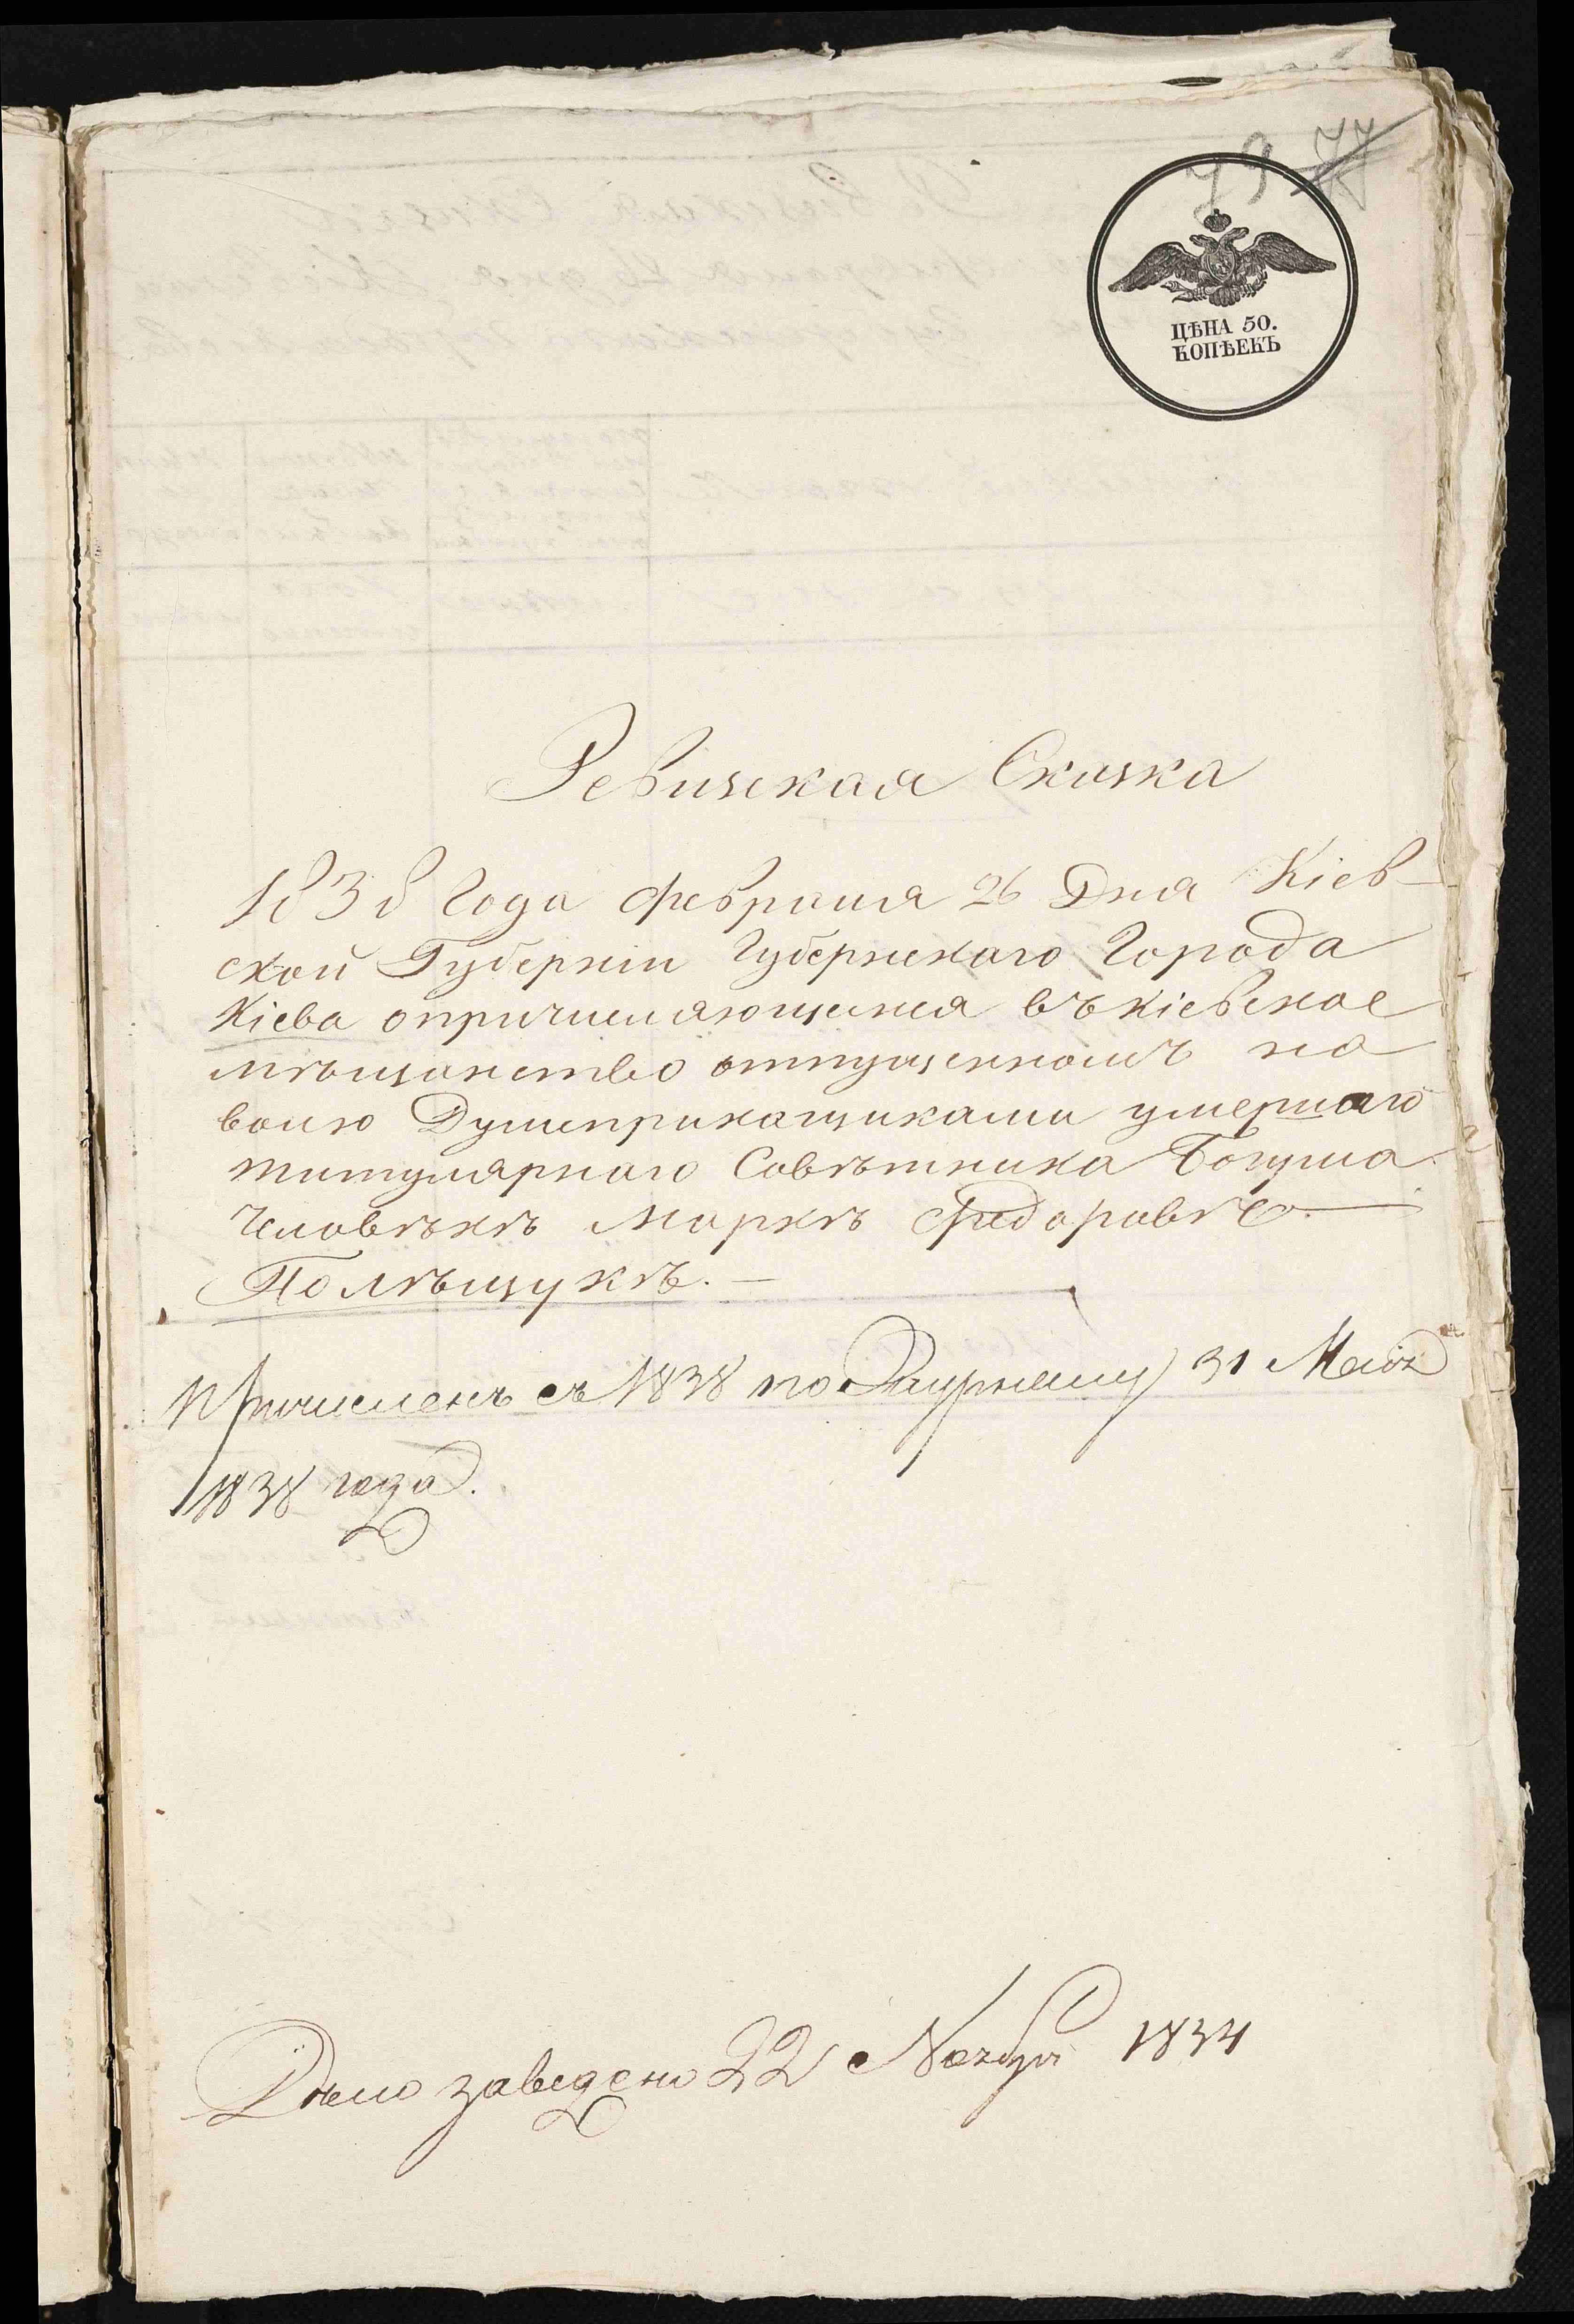 79 77
ЦѢНА 50.
КОПѢЕКЪ
Ревизская Сказка
1838 Года февраля 26 Дня Кіев-
ской Губерніи Губернскаго Города
Кіева опричисляющемся въ кіевское
мѣщанство отпущенномъ на
волю Душеприкащиками умершаго
титулярнаго Совѣтника Богуша
Человѣкѣ Маркѣ Федоровѣ
Полѣщукѣ.
Причисленъ съ 1838 по Журналу 31 Мая
1838 года.
Дѣло заведено 22 Ноября 1834